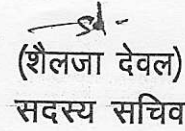 sd-
(शैलजा देवल)
सदस्य सचिव